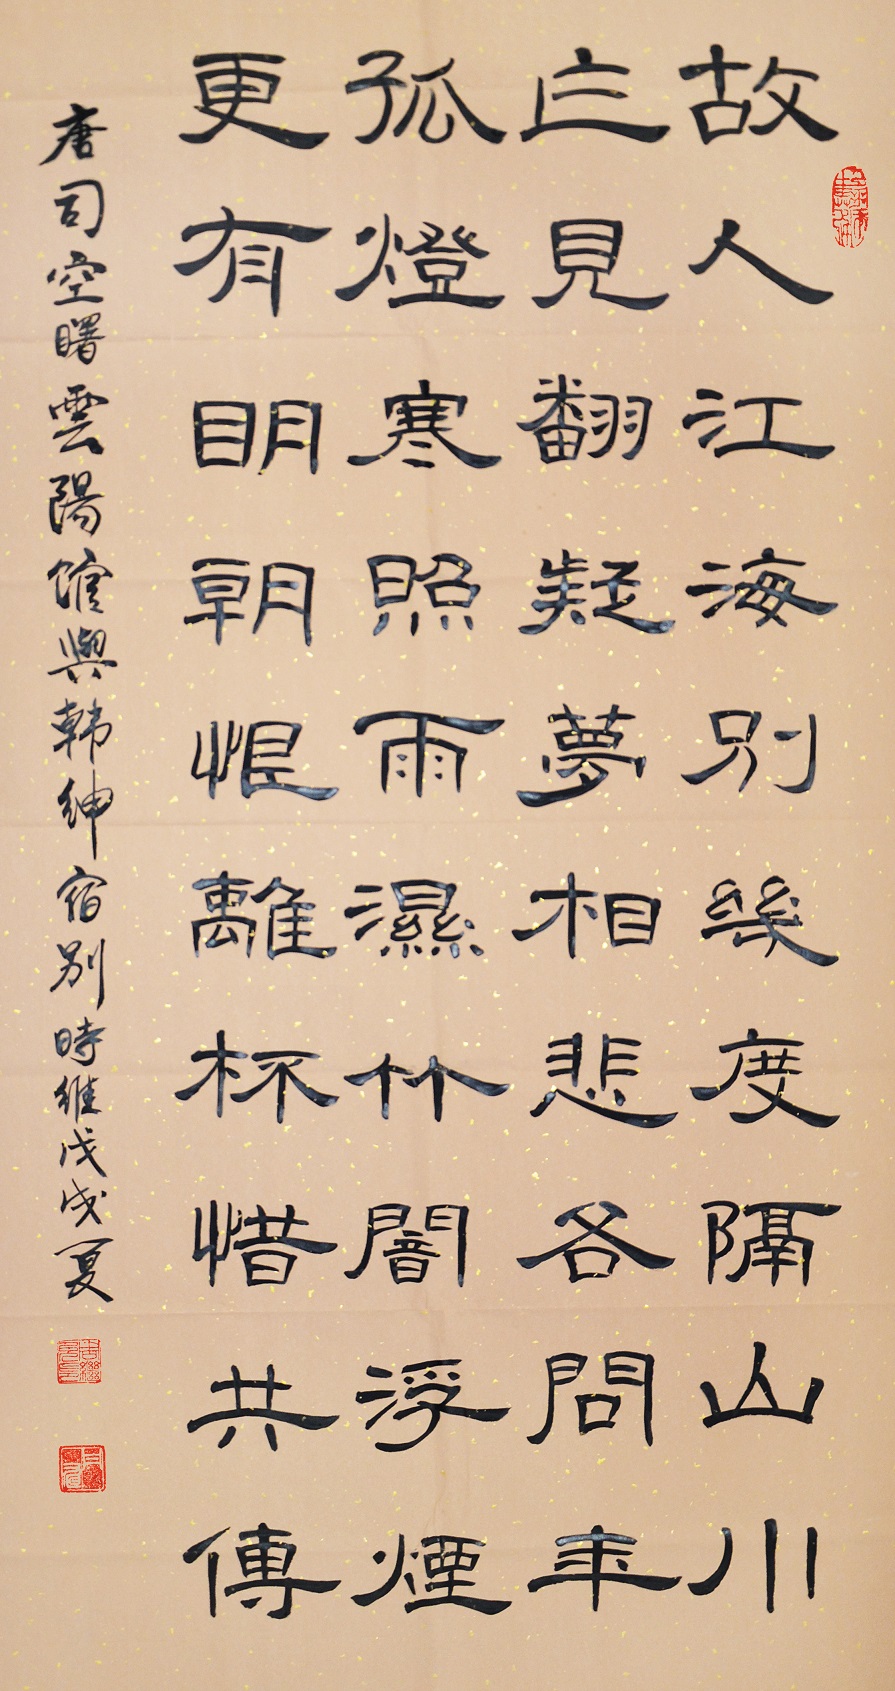 故人江海別幾度隔山川
乍見翻疑夢相悲各問年
孤燈寒照雨濕竹闇浮煙
更有明朝恨離杯惜共傳
唐司空曙雲陽館與韓紳宿別時維戊戌夏